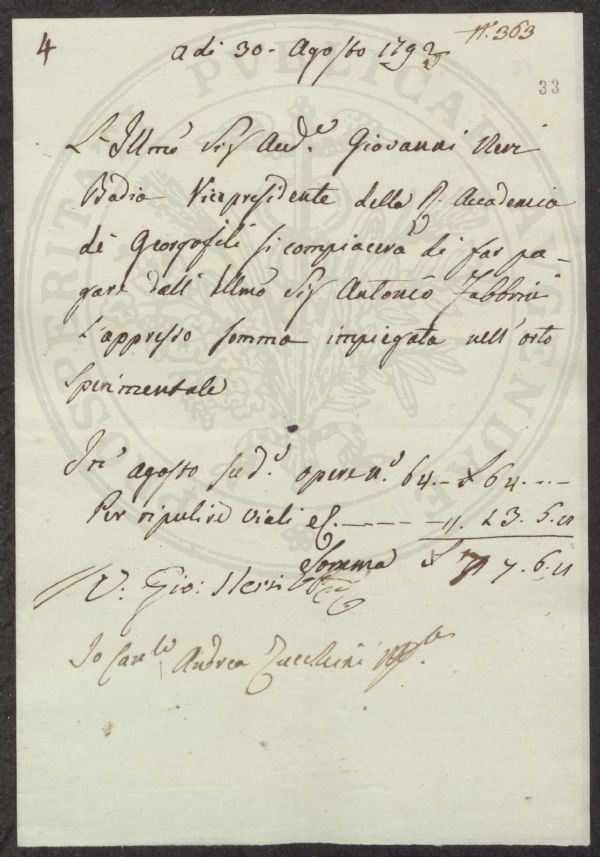 4
N.° 363
a di 30. Agosto 1792
33
L'Illmo Sig Aud.e Giovanni Neri
Badia Vicepresidente della R. Accademia
de Georgofili si compiacerà di far pa-
gare dall' Illmo Sig Antonio Fabbrini
L'appresso somma impiegata nell'orto
sperimentale
In agosto sud.o opere n.o 64.- £ 64.---
Per ripulire viali
Somma £
V: Gio: Neri
Io Can.co Andrea Zucchini
PROSPERITATI PUBLICAE AUGENDAE